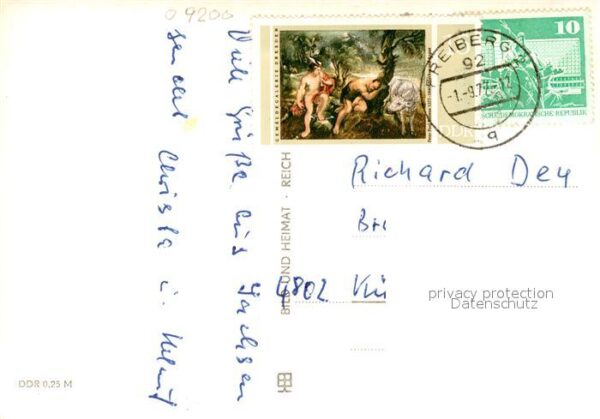 09200
Viele Grüße aus Sachsen
sendet Christa u. Helmut
GEMÄLDEGALERIE DRESDEN
DDR
FREIBERG
92
-1.-9.77-12
q
10
DEUTSCHE DEMOKRATISCHE REPUBLIK
Richard Dey
4802
BILD UND HEIMAT · REICH
privacy protection
Datenschutz
DDR 0,25 M